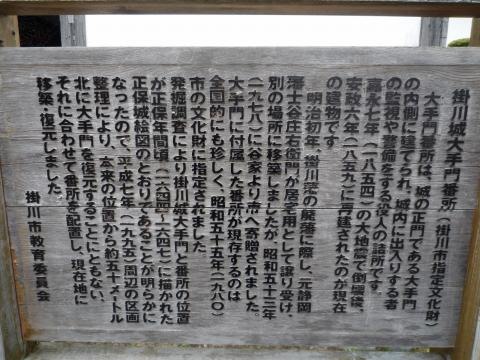 掛川城大手門番所（掛川市指定文化財）
大手門番所は、城の正門である大手門
の内側に建てられ、城内に出入りする者
の監視や警備をする役人の詰所です。
嘉永七年（一八五四）の大地震で倒壊後、
安政六年（一八五九）に再建されたのが現在
の建物です。
明治初年、掛川藩の廃藩に際し、元静岡
藩士谷庄右衛門が居宅用として譲り受け、
別の場所に移築しましたが、昭和五十三年
（一九七八）に谷家より市へ寄贈されました。
大手門に付属した番所が現存するのは
全国的にも珍しく、昭和五十五年（一九八〇）
市の文化財に指定されました
発掘調査により掛川城大手門と番所の位置
が正保年間頃（一六四四-一六四七）に描かれた
正保城絵図のとおりであることが明らかに
なったので、平成七年（一九九五）周辺の区画
整理により、本来の位置から約五十メートル
北に大手門を復元することにともない、
それに合わせて番所を配置し、現在地に
移築・復元しました。
掛川市教育委員会